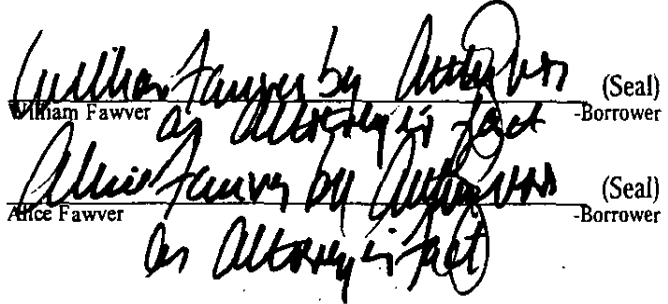 William Fawver by (Seal)
William Fawver -Borrower
as Attorney in fact
Alice Fawver by (Seal)
Alice Fawver -Borrower
as Attorney in fact